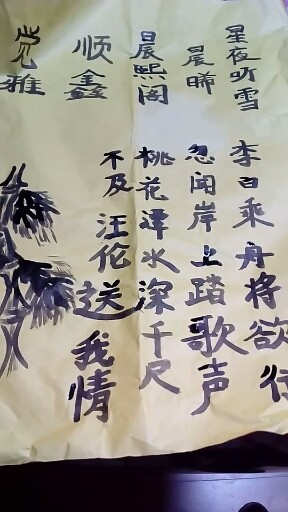 星夜听雪
晨晞
晨熙阁
顺鑫
觉雅
李白乘舟将欲行
忽闻岸上踏歌声
桃花潭水深千尺
不及汪伦送我情